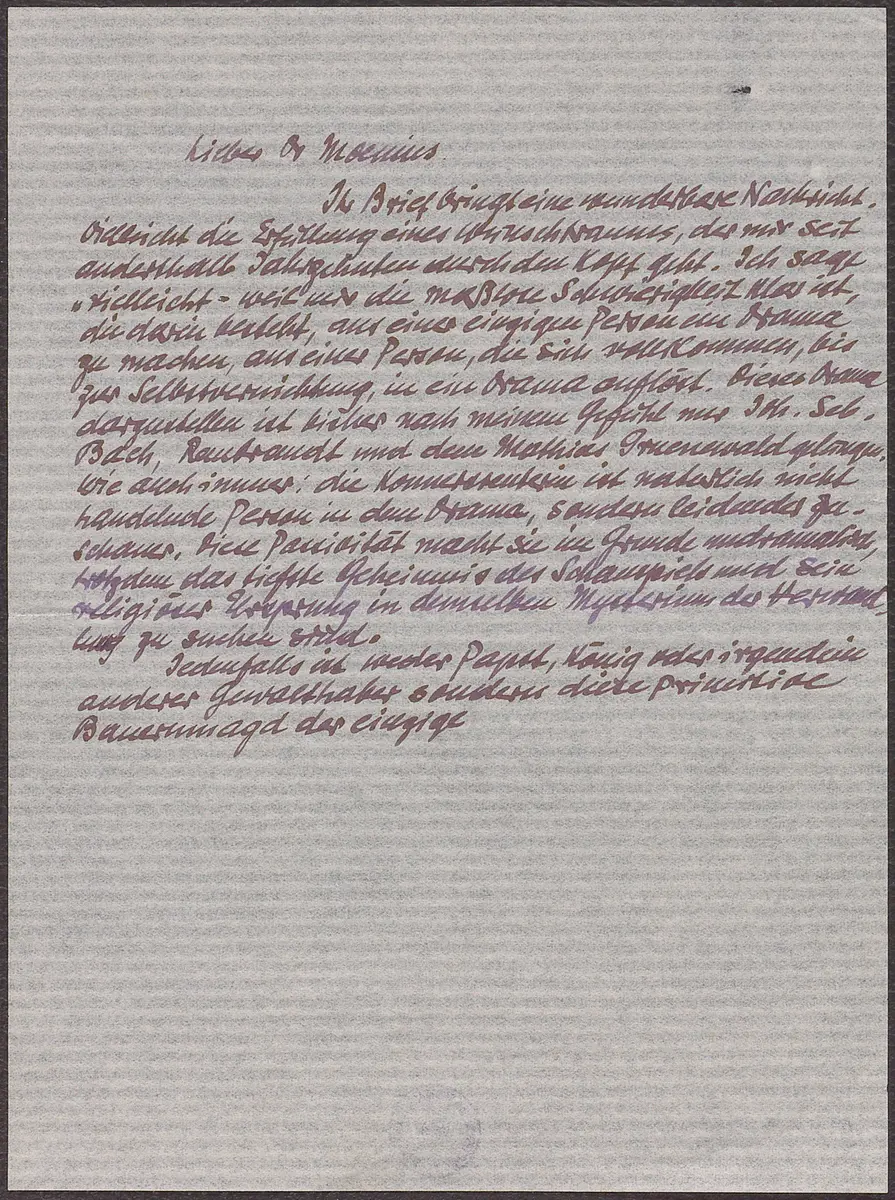 Lieber Dr Moenius.
Ihr Brief bringt eine wunderbare Nachricht.
Vielleicht die Erfüllung eines Wunschtraums, der mir seit
anderthalb Jahrzehnten durch den Kopf geht. Ich sage
"vielleicht" weil mir die maßlose Schwierigkeit klar ist,
die darin besteht, aus einer einzigen Person ein Drama
zu machen, aus einer Person, die sich vollkommen, bis
zur Selbstvernichtung, in ein Drama auflöst. Dieses Drama
darzustellen ist bisher nach meinem Gefühl nur Joh. Seb.
Bach, Rembrandt und dem Mathias Gruenewald gelungen.
Wie auch immer: die Konnersreuterin ist natürlich nicht
handelnde Person in dem Drama, sondern leidender Zu-
schauer. Diese Passivität macht sie im Grunde undramatisch,
trotzdem das tiefste Geheimnis des Schauspiels und sein
religiöser Ursprung in demselben Mysterium der Verwand-
lung zu suchen sind.
Jedenfalls ist weder Papst, König oder irgendein
anderer Gewalthaber sondern diese primitive
Bauernmagd der einzige